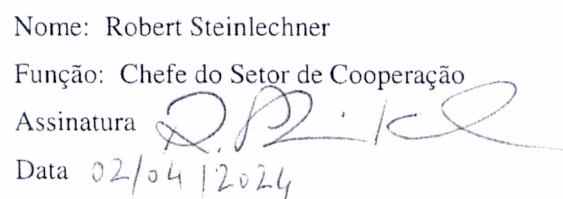 Nome: Robert Steinlechner
Função: Chefe do Setor de Cooperação
Assinatura
Data 02/04/2024